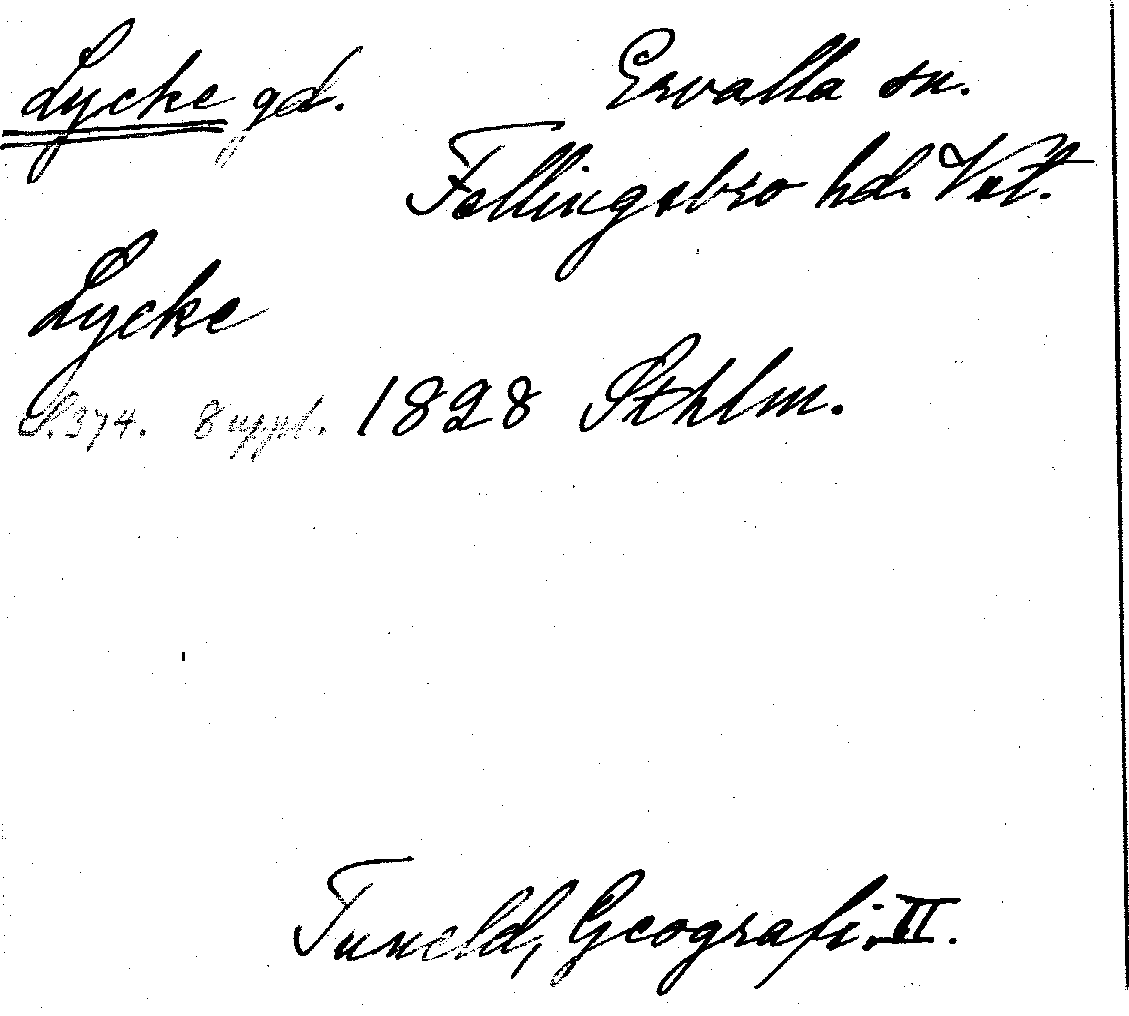 Lycke gd. Ervalla sn.
Fellingsbro hd. Vstl.
Lycke
S. 374. 8 uppl. 1828 Sthlm.
Tuneld, Geografi. II.